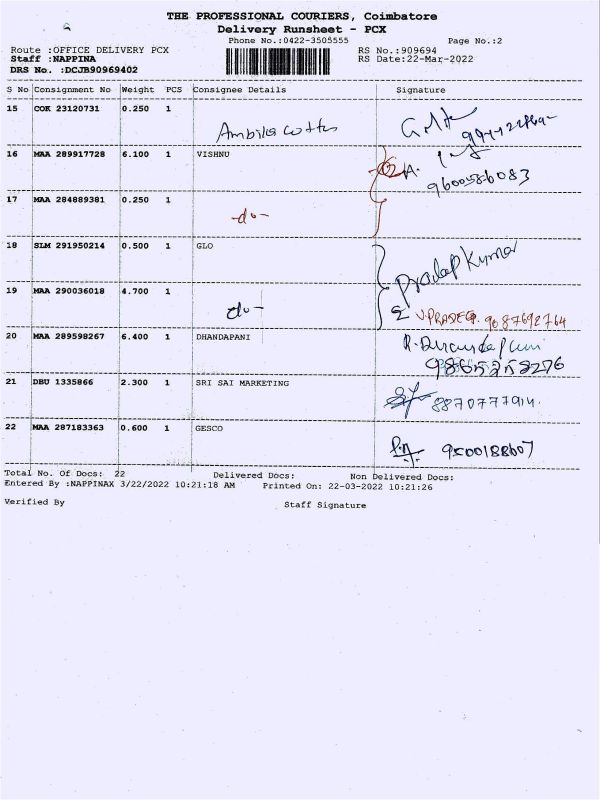 THE PROFESSIONAL COURIERS, Coimbatore
Delivery Runsheet - PCX
Phone No.:0422-3505555 Page No.:2
Route :OFFICE DELIVERY PCX RS No.:909694
Staff :NAPPINA RS Date:22-Mar-2022
DRS No. :DCJB90969402
S No Consignment No Weight PCS Consignee Details Signature
15 COK 23120731 0.250 1
16 MAA 289917728 6.100 1 VISHNU
9600586083
17 MAA 284889381 0.250 1
-do-
18 SLM 291950214 0.500 1 GLO
Pradap Kumar
19 MAA 290036018 4.700 1
do-
9087692764
20 MAA 289598267 6.400 1 DHANDAPANI
9865258276
21 DBU 1335866 2.300 1 SRI SAI MARKETING
8870777914.
22 MAA 287183363 0.600 1 GESCO
9500188607
Total No. Of Docs: 22 Delivered Docs: Non Delivered Docs:
Entered By :NAPPINAX 3/22/2022 10:21:18 AM Printed On: 22-03-2022 10:21:26
Verified By Staff Signature